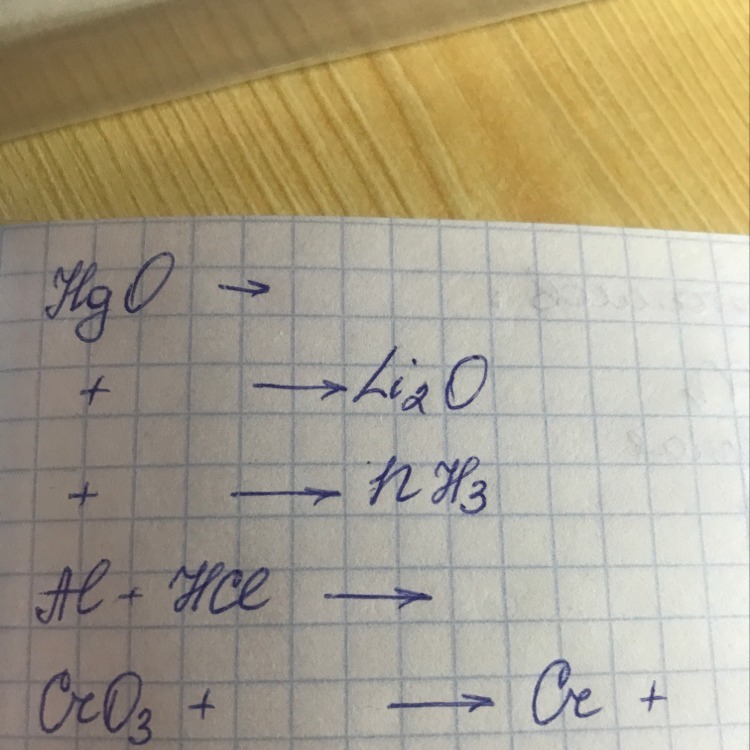 HgO →
+ → Li₂O
+ → NH₃
Al + HCl →
CrO₃ + → Cr +